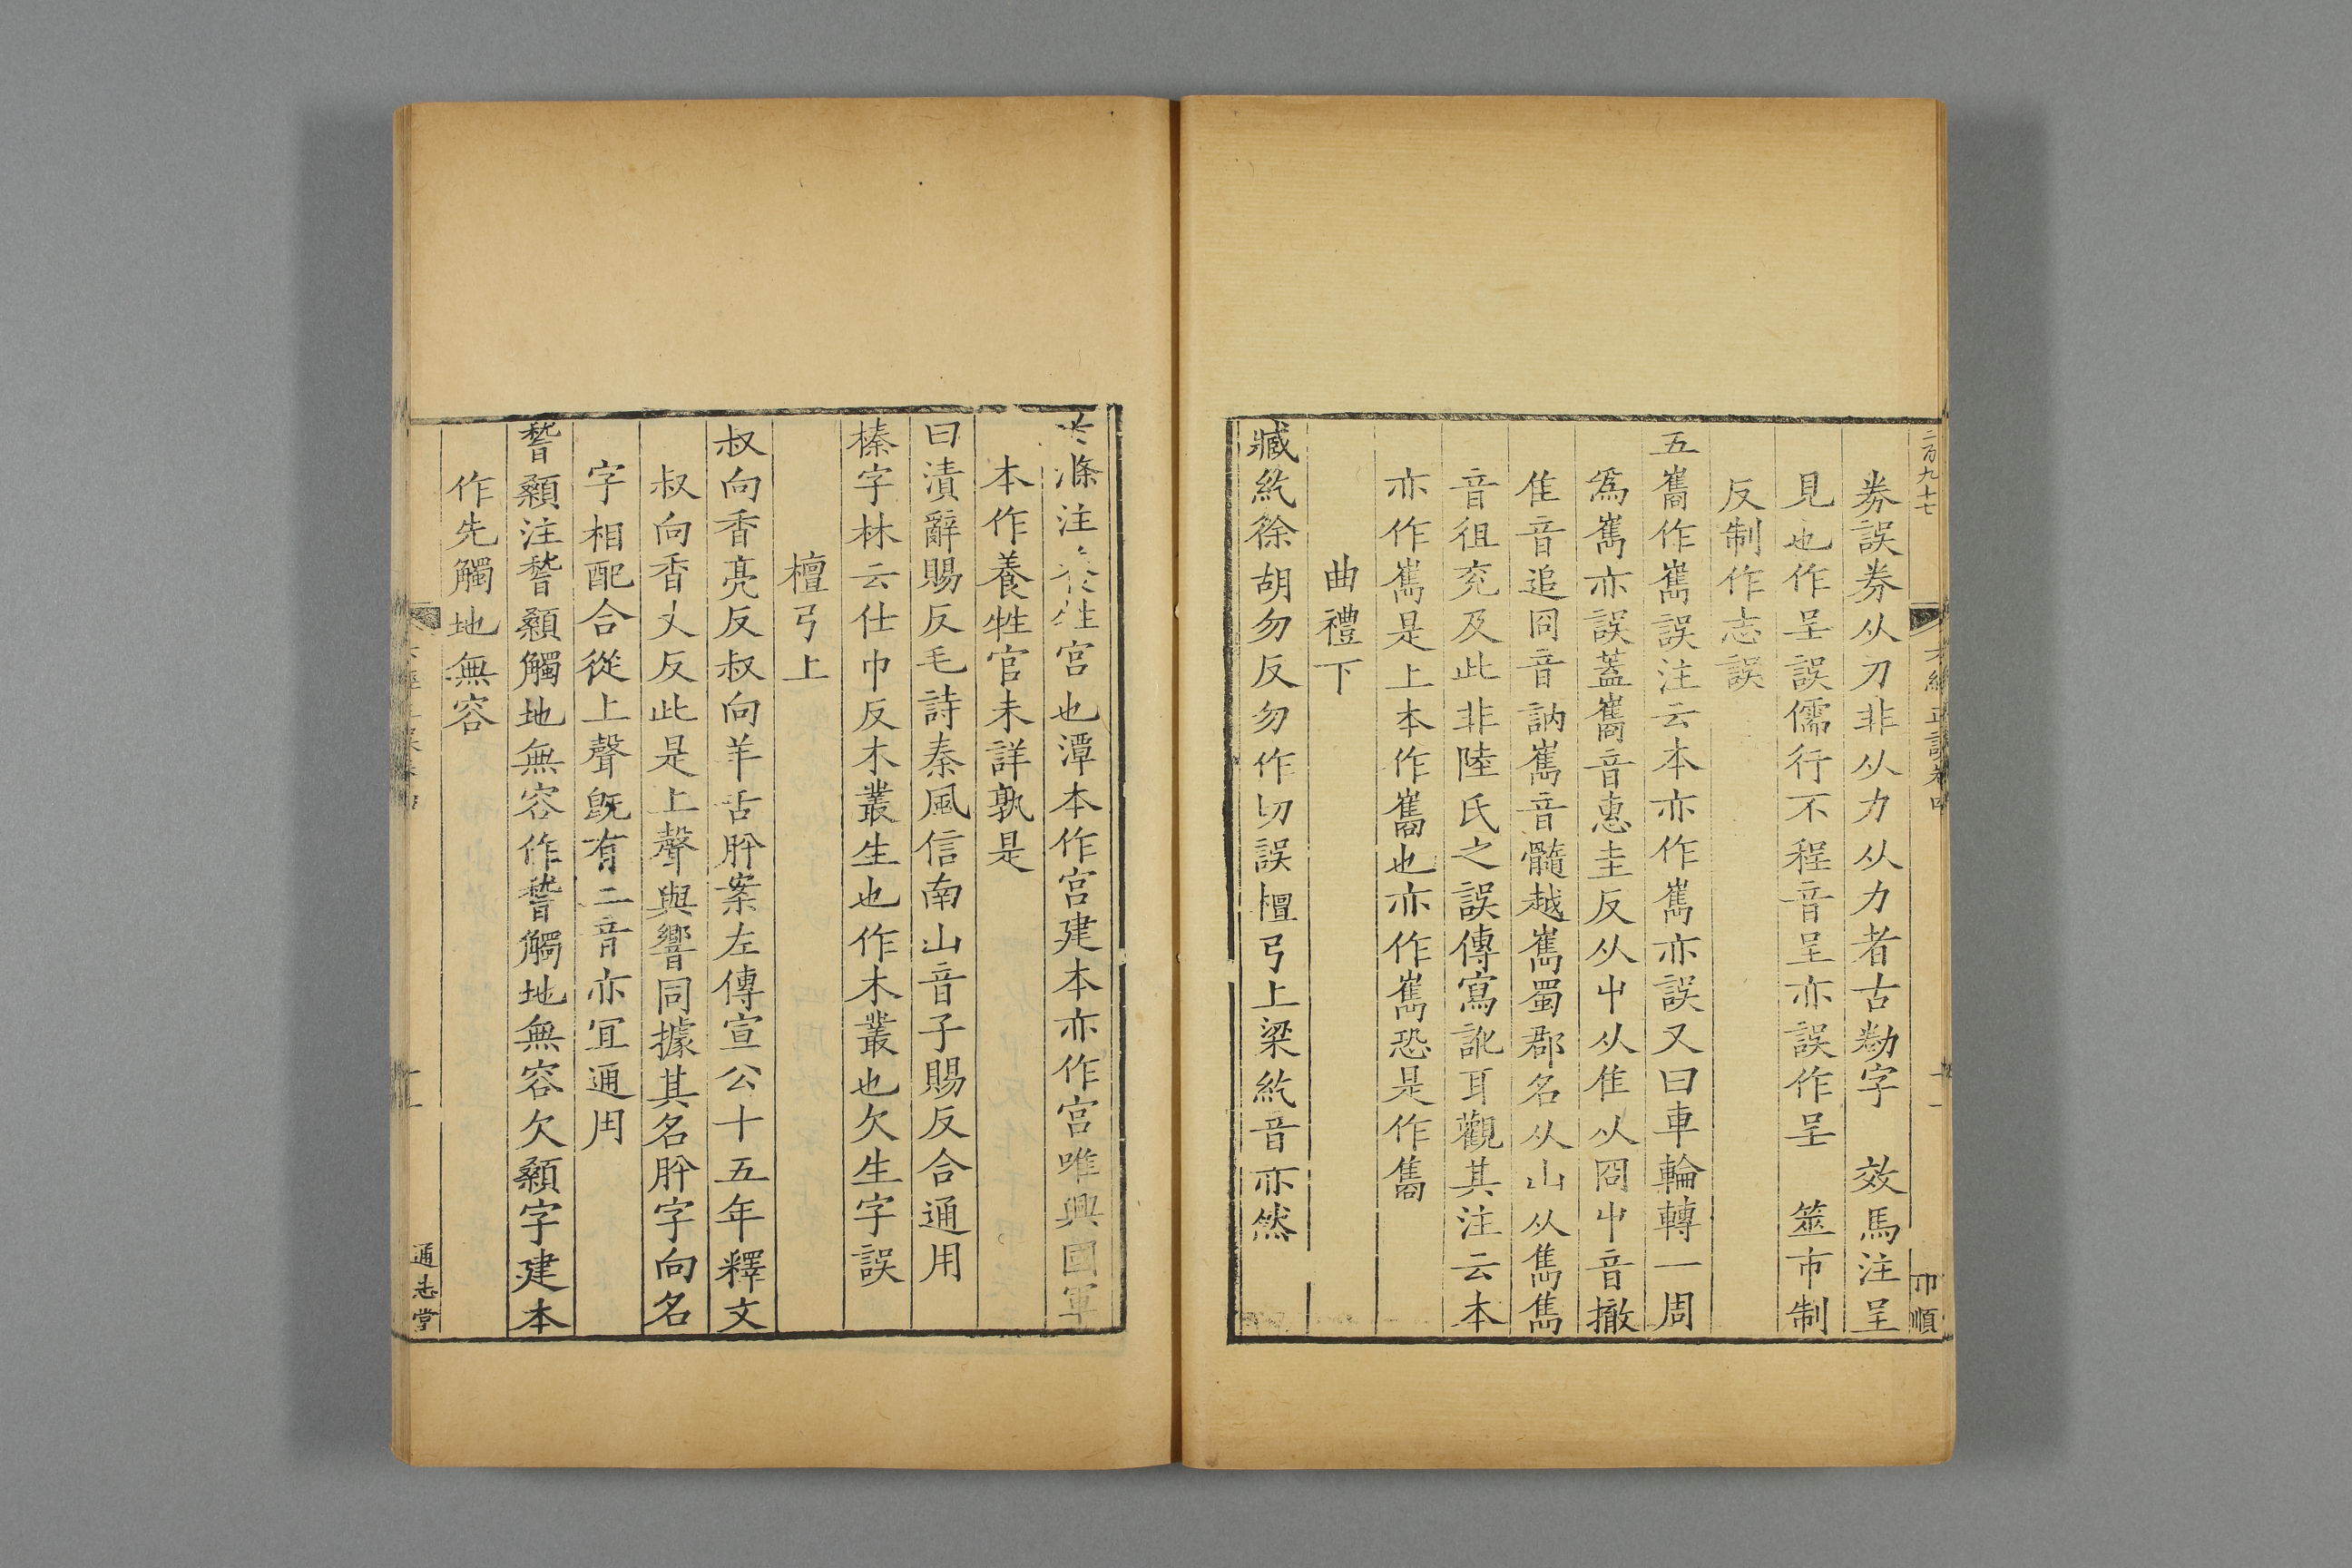 二百九七
六經正誤卷四
十一
卭順
券誤券从刀非从力从力者古勌字　效馬注呈
見也作呈誤儒行不程音呈亦誤作呈　筮市制
反制作志誤
五巂作嶲誤注云本亦作嶲亦誤又曰車輪轉一周
爲嶲亦誤蓋巂音惠圭反从屮从隹从冏屮音撤
隹音追冏音訥嶲音髓越嶲蜀郡名从山从雋雋
音徂兖及此非陸氏之誤傳寫訛耳觀其注云本
亦作嶲是上本作巂也亦作嶲恐是作雟
曲禮下
臧紇徐胡勿反勿作切誤檀弓上梁紇音亦然
滌注養牲宮也潭本作宮建本亦作宮唯興國軍
本作養牲官未詳孰是
曰漬辭賜反毛詩秦風信南山音子賜反合通用
榛字林云仕巾反木叢生也作木叢也欠生字誤
檀弓上
叔向香亮反叔向羊舌肸案左傳宣公十五年釋文
叔向香丈反此是上聲與響同據其名肸字向名
字相配合從上聲旣有二音亦宜通用
稽顙注稽顙觸地無容作稽觸地無容欠顙字建本
作先觸地無容
十一
通志堂